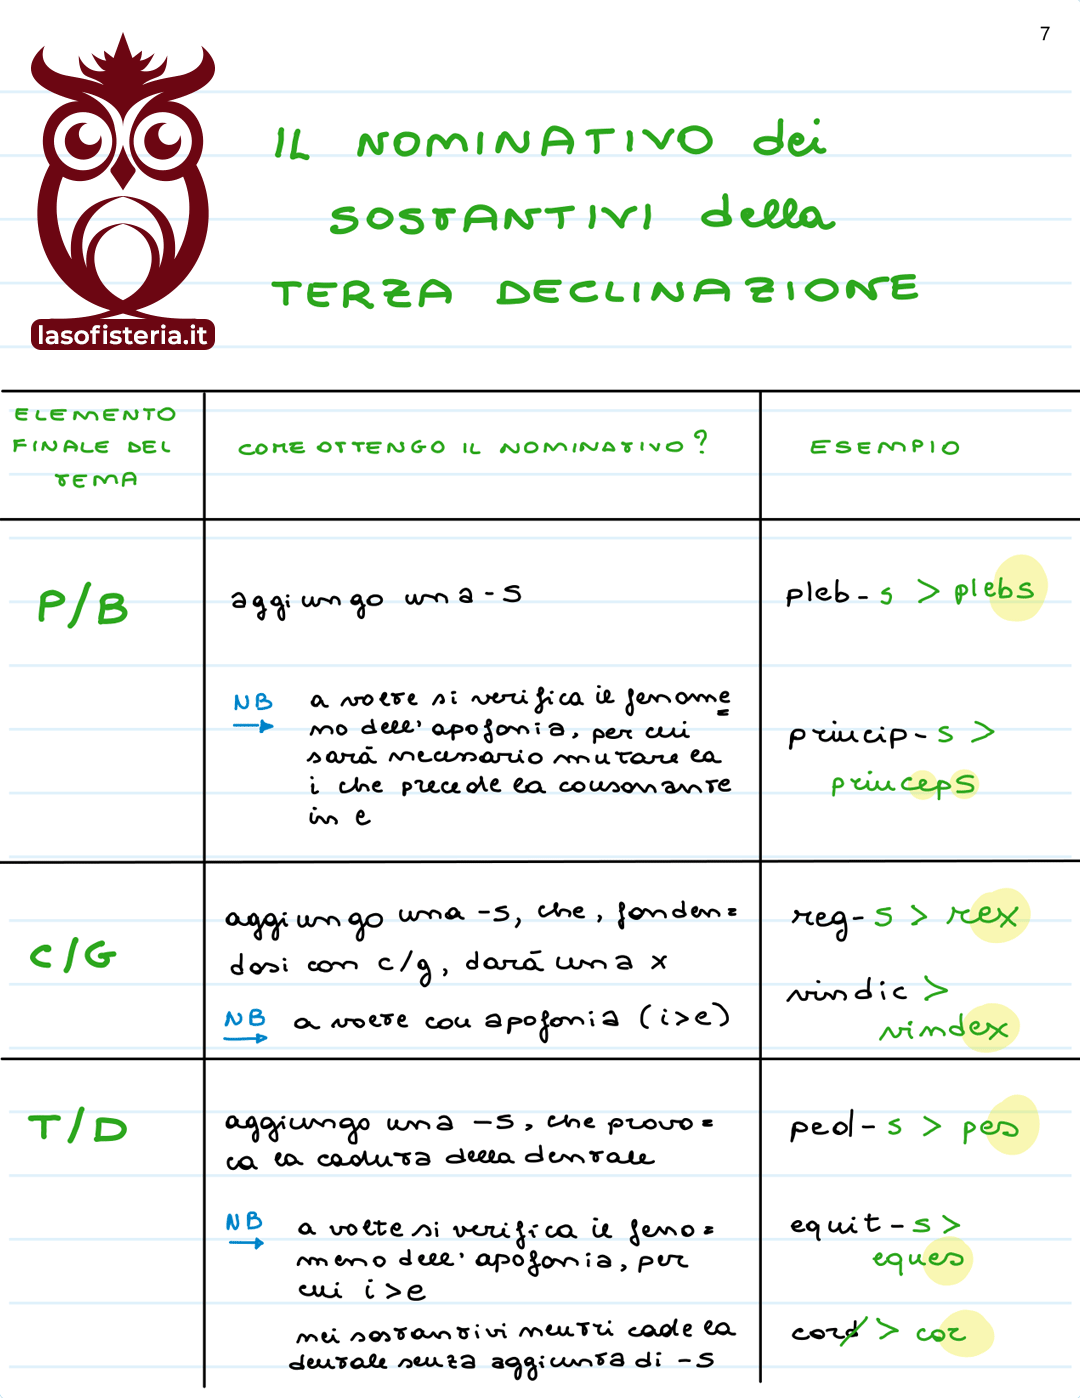 7
lasofisteria.it
IL NOMINATIVO dei
SOSTANTIVI della
TERZA DECLINAZIONE
ELEMENTO
FINALE DEL
TEMA
COME OTTENGO IL NOMINATIVO?
ESEMPIO
P/B
aggiungo una -s
pleb-s > plebs
NB a volte si verifica il fenome=
no dell'apofonia, per cui
sarà necessario mutare la
i che precede la consonante
in e
princip-s >
princeps
C/G
aggiungo una -s, che, fonden=
dosi con c/g, darà una x
NB a volte con apofonia (i>e)
reg-s > rex
vindic >
vindex
T/D
aggiungo una -s, che provo=
ca la caduta della dentale
ped-s > pes
NB a volte si verifica il feno=
meno dell'apofonia, per
cui i>e
equit-s >
eques
nei sostantivi neutri cade la
dentale senza aggiunta di -s
cord > cor